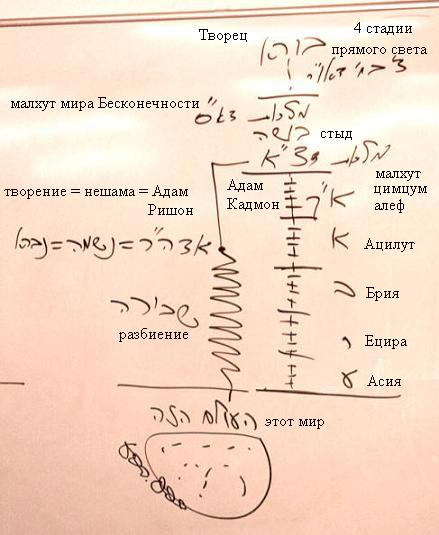 Творец
בורא
4 стадии
прямого света
ד' בחי' דאו"י
малхут мира Бесконечности
מלכות דא"ס
בושה
стыд
מלכות צ"א
малхут
цимцум
алеф
Адам
Кадмон
א"ק
творение = нешама = Адам
Ришон
אדה"ר = נשמה = נברא
א
Ацилут
ב
Брия
שבירה
разбиение
י
Ецира
ע
Асия
העולם הזה
этот мир